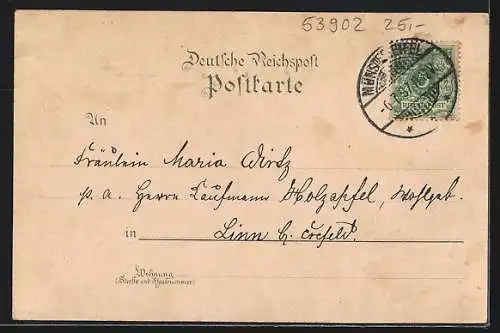 53902 25,-
Deutsche Reichspost
Postkarte
MÜNSTEREIFEL
An
Fräulein Maria Wirtz
p. a. Herrn Kaufmann Holzapfel, Wohlgeb.
in Linn b. Crefeld.
Wohnung
(Straße und Hausnummer)